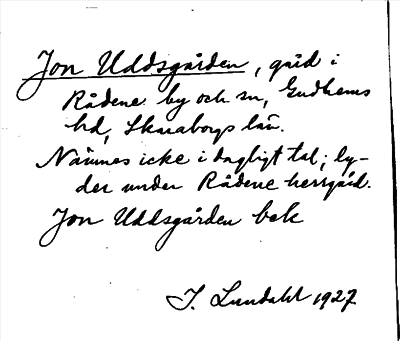 Jon Uddsgården, gård i
Rådene by och sn, Gudhems
hd, Skaraborgs län.
Nämnes icke i dagligt tal; ly-
der under Rådene herrgård.
Jon Uddsgården bek
I. Lundahl 1927